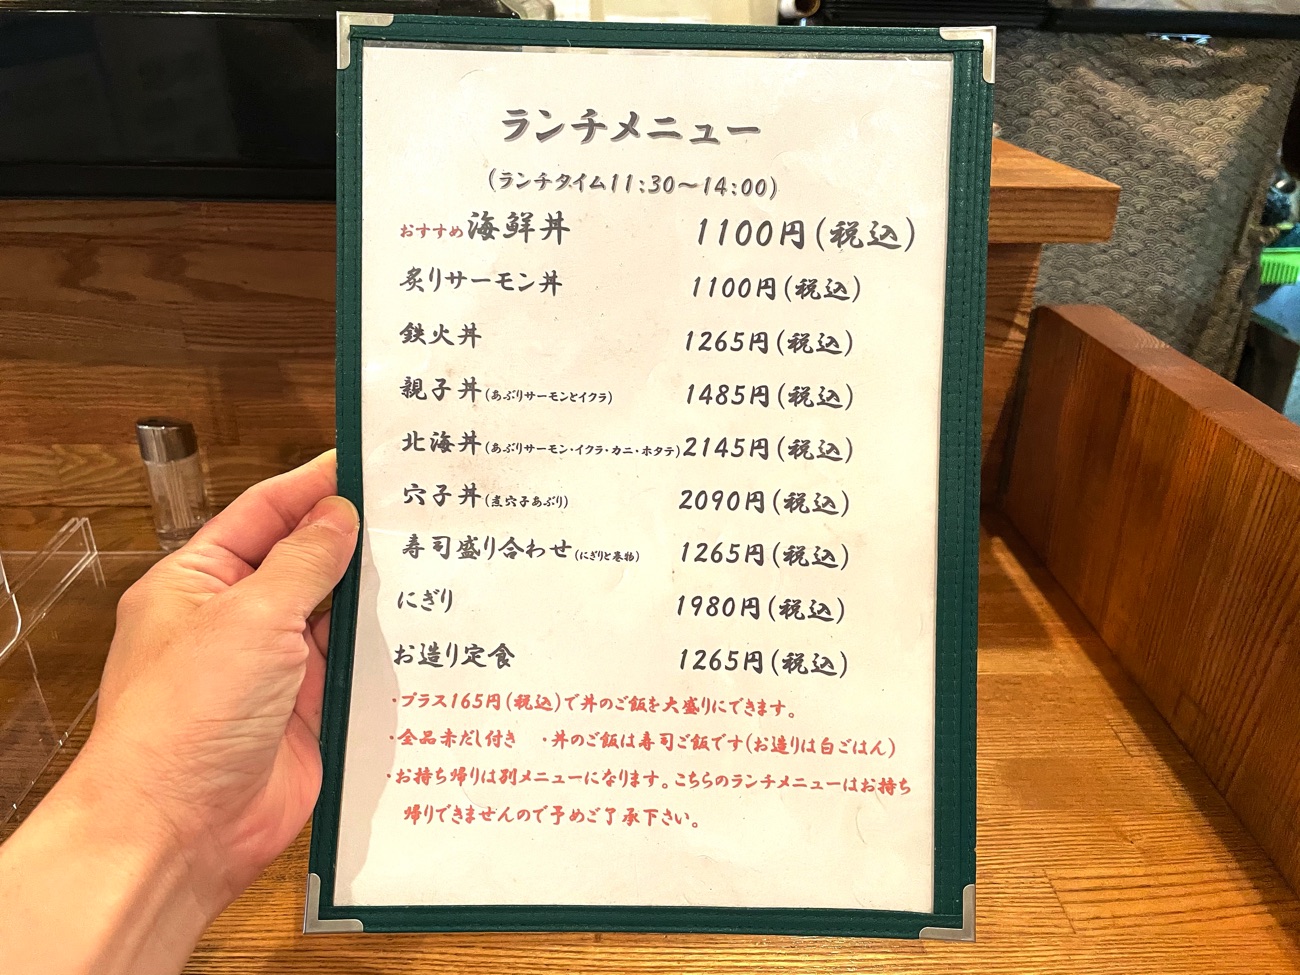 ランチメニュー
(ランチタイム11:30～14:00)
おすすめ海鮮丼 1100円(税込)
炙りサーモン丼 1100円(税込)
鉄火丼 1265円(税込)
親子丼(あぶりサーモンとイクラ) 1485円(税込)
北海丼(あぶりサーモン・イクラ・カニ・ホタテ) 2145円(税込)
穴子丼(煮穴子あぶり) 2090円(税込)
寿司盛り合わせ(にぎりと巻物) 1265円(税込)
にぎり 1980円(税込)
お造り定食 1265円(税込)
・プラス165円(税込)で丼のご飯を大盛りにできます。
・全品赤だし付き ・丼のご飯は寿司ご飯です(お造りは白ごはん)
・お持ち帰りは別メニューになります。こちらのランチメニューはお持ち
帰りできませんので予めご了承下さい。